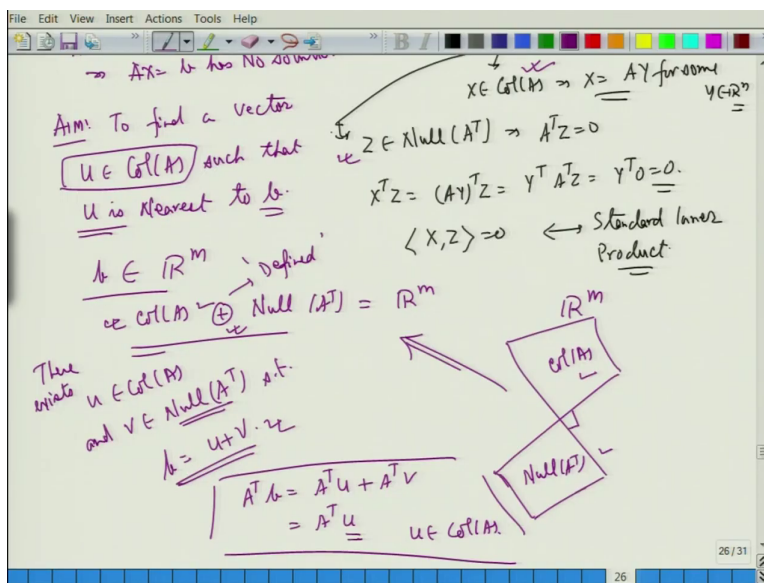 File Edit View Insert Actions Tools Help
⇒ AX = b has No
Aim: To find a vector
u ∈ Col(A) such that
u is Nearest to b.
b ∈ ℝ^m
'Defined'
Col(A) ⊕ Null (A^T) = ℝ^m
There exists u ∈ Col(A)
and v ∈ Null(A^T) s.t.
b = u + v.
A^T b = A^T u + A^T v
= A^T u u ∈ Col(A).
X ∈ Col(A) ⇒ X = AY for some
Y ∈ ℝ^n
Z ∈ Null(A^T) ⇒ A^T Z = 0
X^T Z = (AY)^T Z = Y^T A^T Z = Y^T 0 = 0.
⟨X, Z⟩ = 0 ↔ Standard Inner
Product.
ℝ^m
Col(A)
Null(A^T)
26 / 31
26